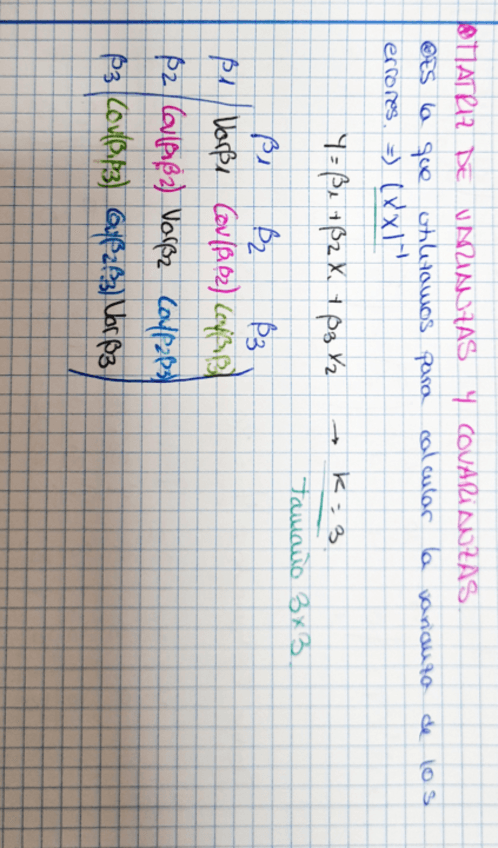 MATRIZ DE VARIANZAS Y COVARIANZAS.
ES la que utilizamos para calcular la varianza de los
errores. => (X'X)⁻¹
Y = β1 + β2X1 + β3X2 → K = 3
Tamaño 3x3.
β1 β2 β3
β1 Varβ1 Cov(β1,β2) Cov(β1,β3)
β2 Cov(β1,β2) Varβ2 Cov(β2,β3)
β3 Cov(β1,β3) Cov(β2,β3) Varβ3